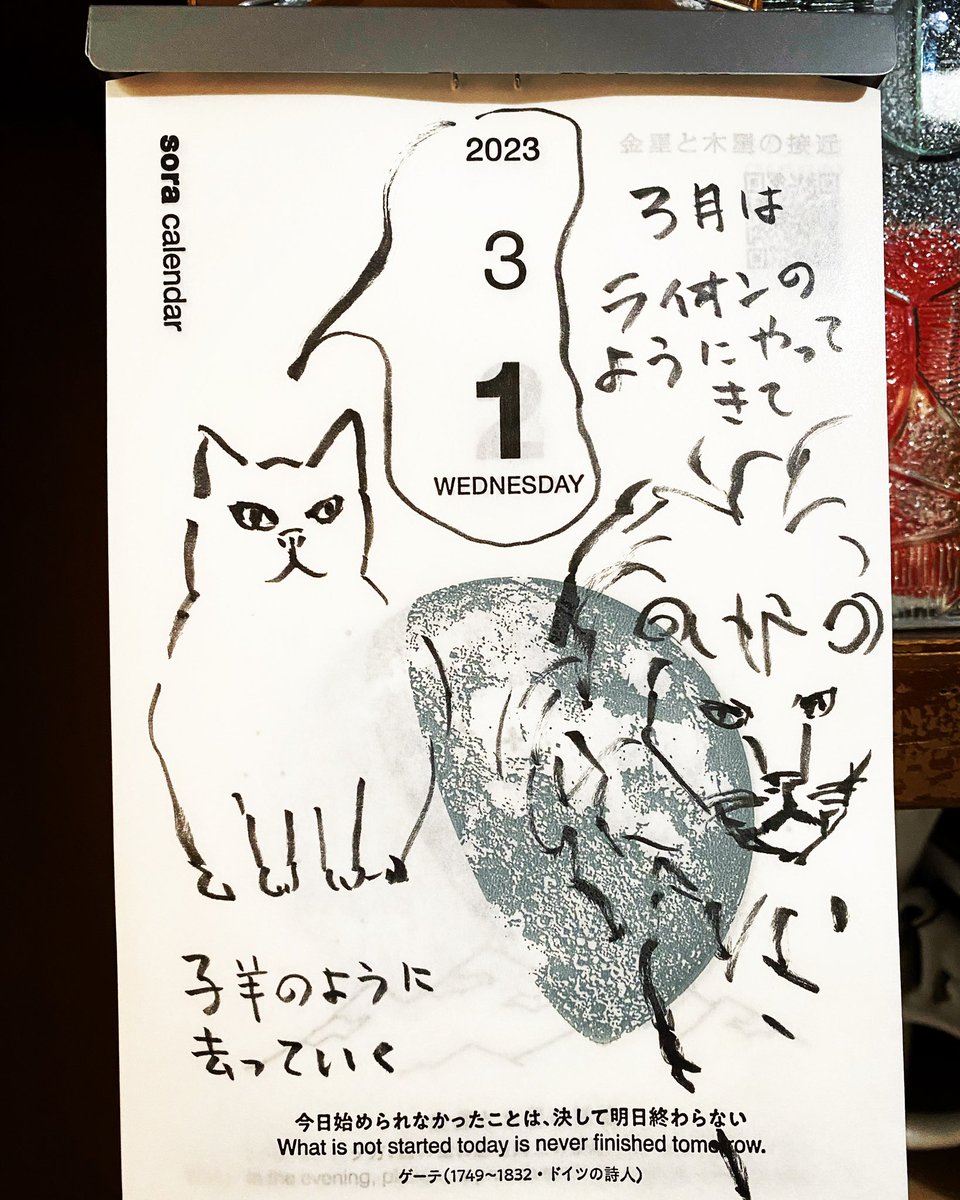 sora calendar
2023
3
1
WEDNESDAY
金星と木星の接近
3月は
ライオンの
ようにやって
きて
子羊のように
去っていく
今日始められなかったことは、決して明日終わらない
What is not started today is never finished tomorrow.
ゲーテ(1749~1832・ドイツの詩人)